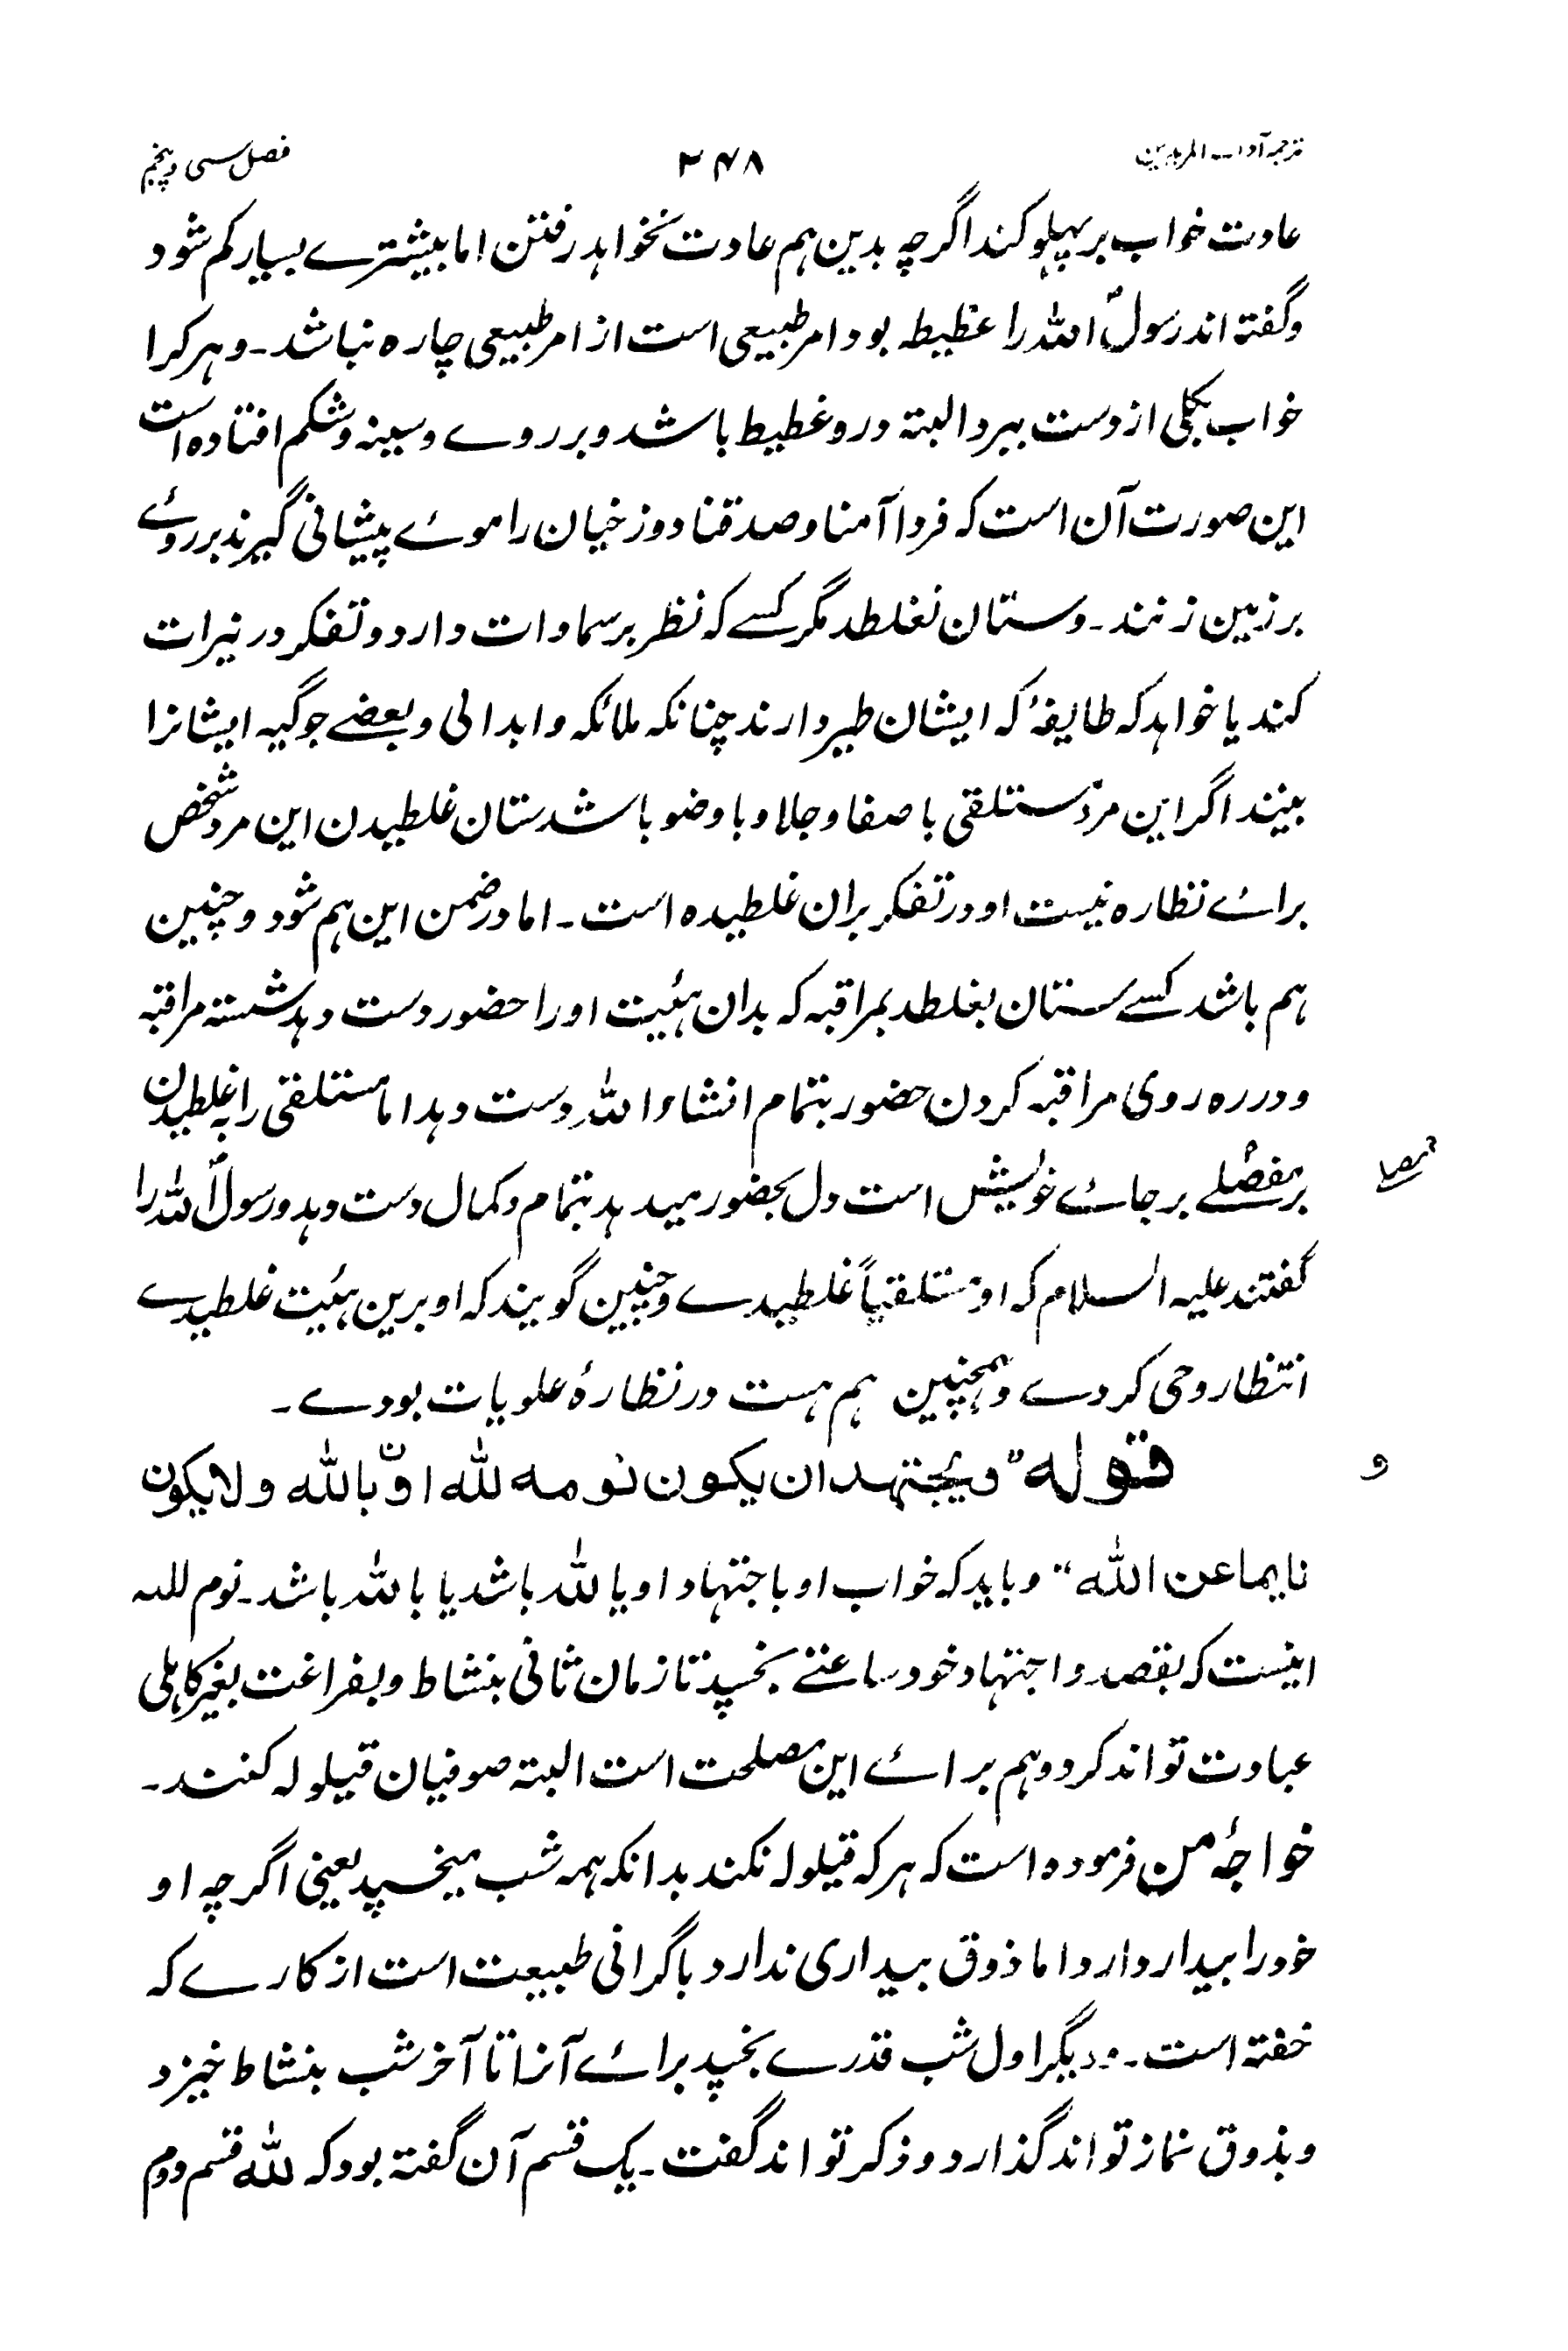 ترجمه آداب المریدین ۲۴۸ فصل سی و پنجم
عادت خواب بر پہلو کند اگرچہ بدین ہم عادت نخواہد رفتن اما بیشترے بسیار کم شود
و گفتہ اند رسولؐ اللہ را غطیطہ بود امر طبیعی است از امر طبیعی چارہ نباشد۔ و ہر کرا
خواب بکلی از دست ببرد البتہ درو غطیط باشد و بر روے و سینہ و شکم افتادہ است
این صورت آن است کہ فردا آمنا و صدقنا دوزخیان را موے پیشانی گیرند بر روے
بر زمین زنند۔ وستان نغلطد مگر کسے کہ نظر بر سماوات دارد و تفکر در نیرات
کند یا خواہد کہ طایفۂ کہ ایشان طیر دارند چنانکہ ملائکہ و ابدالی و بعضے جوگیہ ایشانرا
بیند اگر این مرد مستلقی با صفا و جلا و با وضو باشد ستان غلطیدن این مرد شخص
براے نظارہ نیست او در تفکر بران غلطیدہ است۔ اما در ضمن این ہم شود و چنین
ہم باشد کسے ستان بغلطد بمراقبہ کہ بدان ہئیت اورا حضور دست دہد نشستہ مراقبہ
و در رہ روی مراقبہ کردن حضور بتمام انشاء اللہ دست دہد اما مستلقی را بہ غلطیدن
ہر مفصلے بر جاے خویش است دل بحضور میدہد بتمام و کمال دست دہد و رسولؐ اللہ را
گفتند علیہ السلام کہ او مستلقیاً غلطیدے و چنین گویند کہ او برین ہئیت غلطیدے
انتظار وحی کردے و ہمچنین ہم ہست در نظارۂ علویات بودے۔
و
قوله "ویجتهد ان یکون نومه لله او بالله و لا یکون
نایما عن الله" و باید کہ خواب او باجتہاد او یا للہ باشد یا باللہ باشد۔ نوم للہ
اینست کہ بقصد و اجتہاد خود ساعتے بخسپد تا زمان ثانی بنشاط و بفراغت بغیر کاہلی
عبادت تواند کرد و ہم براے این مصلحت است البتہ صوفیان قیلولہ کنند۔
خواجۂ من فرمودہ است کہ ہر کہ قیلولہ نکند بدانکہ ہمہ شب میخسپد یعنی اگرچہ او
خود را بیدار دارد اما ذوق بیداری ندارد با گرانی طبیعت است از کارے کہ
خفتہ است۔ و دیگر اول شب قدرے بخسپد براے آنرا تا آخر شب بنشاط خیزد
و بذوق نماز تواند گذارد و ذکر تواند گفت۔ یک قسم آن گفتہ بود کہ للہ قسم دوم